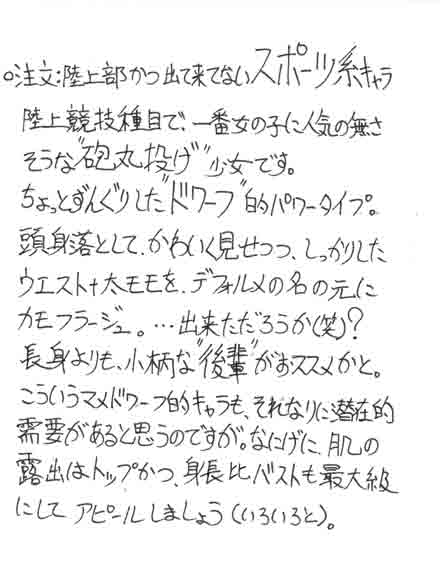 ○注文:陸上部かつ出て来てないスポーツ系キャラ
陸上競技種目で、一番女の子に人気の無さ
そうな"砲丸投げ"少女です。
ちょっとずんぐりした"ドワーフ"的パワータイプ。
頭身落として、かわいく見せつつ、しっかりした
ウエスト+太モモを、デフォルメの名の元に
カモフラージュ。…出来ただろうか(笑)?
長身よりも、小柄な"後輩"がおススメかと。
こういうマメドワーフ的キャラも、それなりに潜在的
需要があると思うのですが。なにげに、肌の
露出はトップかつ、身長比バストも最大級
にして アピールしましょう(いろいろと)。